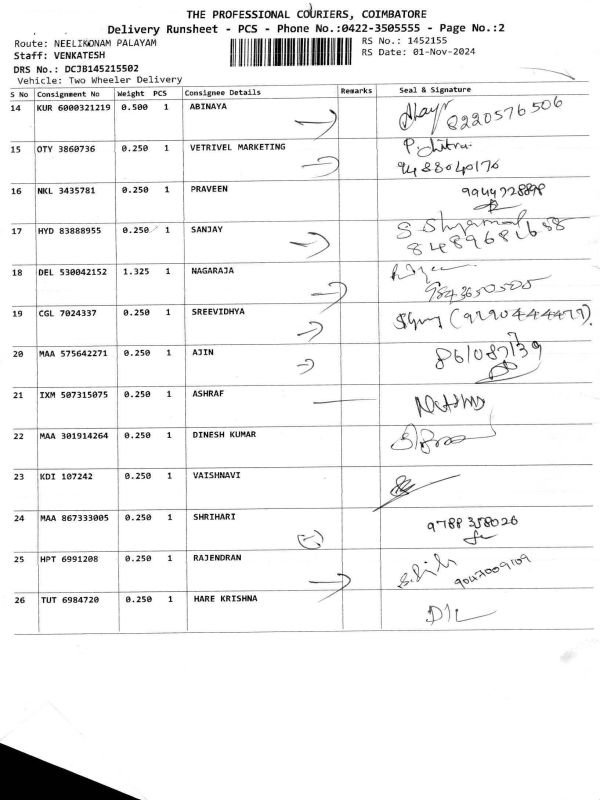 THE PROFESSIONAL COURIERS, COIMBATORE
Delivery Runsheet - PCS - Phone No.:0422-3505555 - Page No.:2
Route: NEELIKONAM PALAYAM
RS No.: 1452155
Staff: VENKATESH
RS Date: 01-Nov-2024
DRS No.: DCJB145215502
Vehicle: Two Wheeler Delivery
S No Consignment No Weight PCS Consignee Details Remarks Seal & Signature
14 KUR 6000321219 0.500 1 ABINAYA
8220576506
15 OTY 3860736 0.250 1 VETRIVEL MARKETING P. Chitra
9488040170
16 NKL 3435781 0.250 1 PRAVEEN
17 HYD 83888955 0.250 1 SANJAY
8489681658
18 DEL 530042152 1.325 1 NAGARAJA
9843650505
19 CGL 7024337 0.250 1 SREEVIDHYA
20 MAA 575642271 0.250 1 AJIN
21 IXM 507315075 0.250 1 ASHRAF
22 MAA 301914264 0.250 1 DINESH KUMAR
23 KDI 107242 0.250 1 VAISHNAVI
24 MAA 867333005 0.250 1 SHRIHARI 9788358026
25 HPT 6991208 0.250 1 RAJENDRAN 9047009109
26 TUT 6984720 0.250 1 HARE KRISHNA